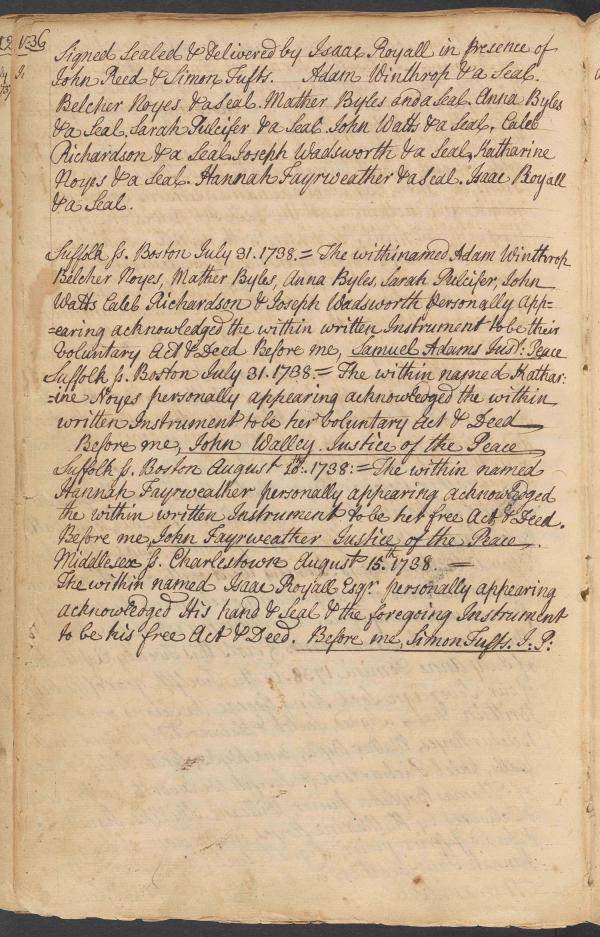 1736
Signed Sealed & Delivered by Isaac Royall in presence of
John Reed & Simon Tufts. Adam Winthrop & a Seal.
Belcher Noyes & a Seal. Mather Byles and a Seal. Anna Byles
& a Seal, Sarah Pulcifer & a Seal. John Watts & a Seal, Caleb
Richardson & a Seal. Joseph Wadsworth & a Seal, Katharine
Noyes & a Seal. Hannah Fayrweather & a Seal. Isaac Royall
& a Seal.
Suffolk ſs. Boston July 31. 1738. = The withinamed Adam Winthrop
Belcher Noyes, Mather Byles, Anna Byles, Sarah Pulcifer, John
Watts Caleb Richardson & Joseph Wadsworth Personally App=
=earing acknowledged the within written Instrument to be their
Voluntary Act & Deed Before me, Samuel Adams Just: Peace
Suffolk ſs. Boston July 31. 1738 = The within named Kathar:
=ine Noyes personally appearing acknowledged the within
written Instrument to be her Voluntary Act & Deed
Before me, John Walley. Justice of the Peace
Suffolk ſs. Boston August 1738: = The within named
Hannah Fayrweather personally appearing acknowledged
the within written Instrument to be her free Act & Deed.
Before me, John Fayrweather Justice of the Peace.
Middlesex ſs. Charlestown August 15.th 1738. =
The within named Isaac Royall Esqr. personally appearing
acknowledged His hand & Seal & the foregoing Instrument
to be his free Act & Deed. Before me, Simon Tufts. J: P: